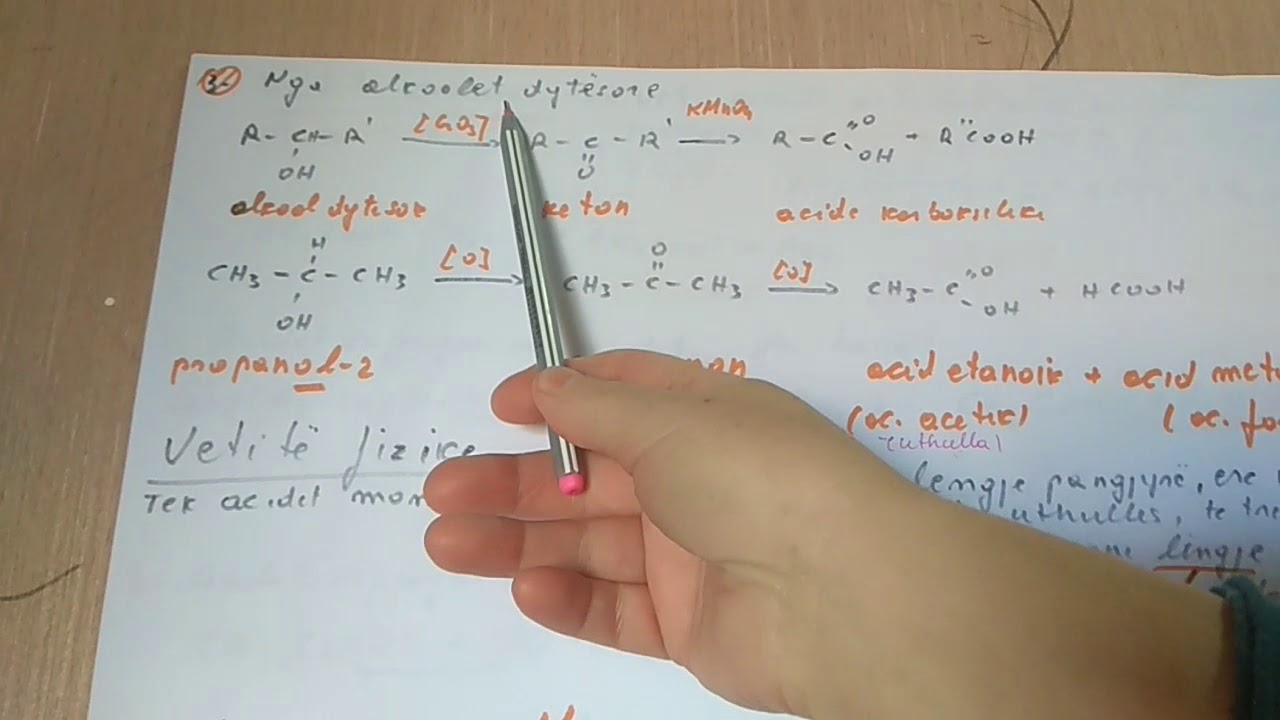 3. Nga alkoolet dytësore
R - CH - R' [CrO3] R - C - R' KMnO4 R - C O OH + R''COOH
OH O
alkool dytësor keton acide karboksilike
H O
CH3 - C - CH3 [O] CH3 - C - CH3 [O] CH3 - C O OH + HCOOH
OH
propanol-2 acid etanoik + acid meta
(ac. acetik) (ac. fo
(uthulla)
Vetitë fizike
Tek acidet mon lengje pangjyrë, ere
uthulles, te tre
lëngje